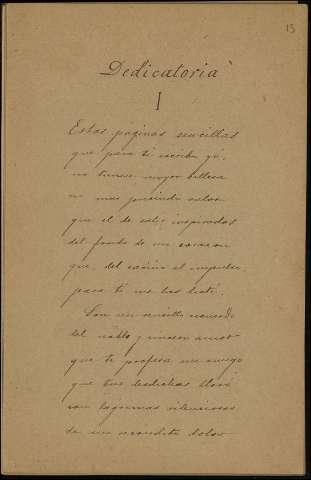 13
Dedicatoria
I
Estas páginas sencillas
que para ti escribo yó,
no tienen mayor belleza
ni mas preciado valor
que el de estar inspiradas
del fondo de mi corazon
que, del cariño al impulso
para ti me las dictó.
Son un sencillo recuerdo
del noble y sincero amor
que te profesa un amigo
que tus desdichas lloró
con lágrimas silenciosas
de un recondito dolor